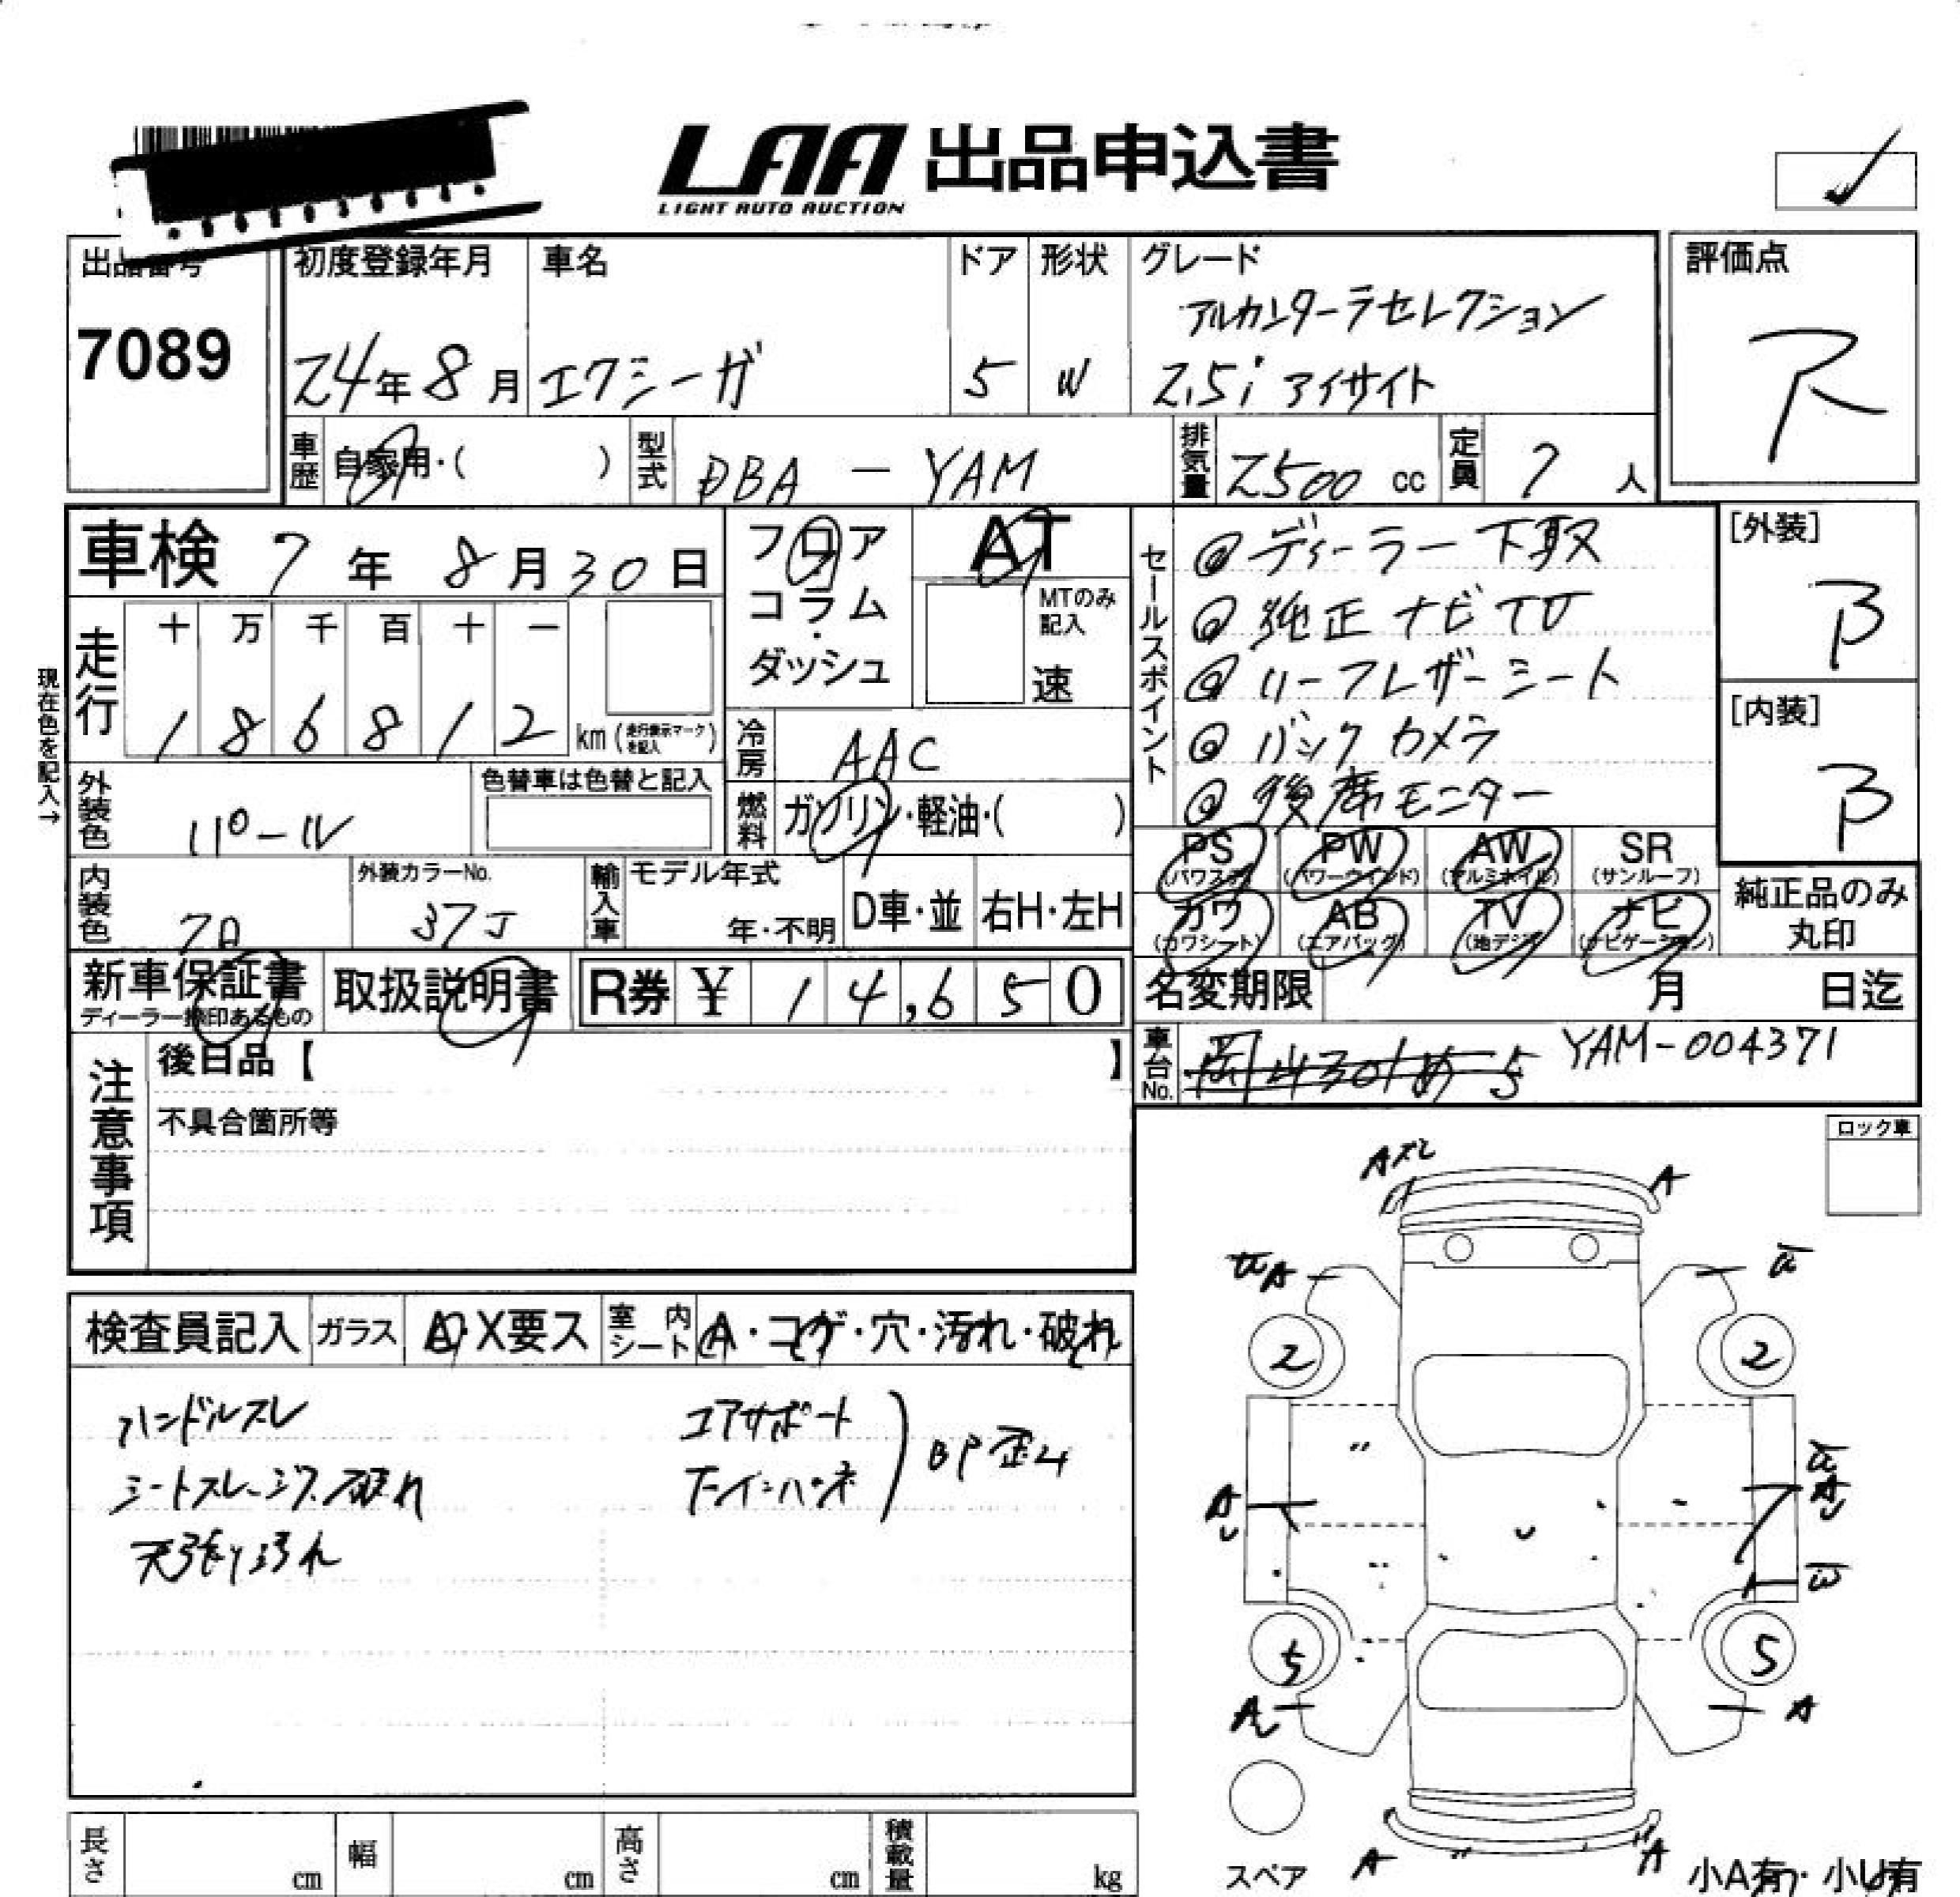 LAA 出品申込書
LIGHT AUTO AUCTION
出品番号 初度登録年月 車名 ドア 形状 グレード 評価点
7089 24年8月 エクシーガ 5 W アルカンターラセレクション
2.5i アイサイト R
車歴 自家用・( ) 型式 DBA - YAM 排気量 2500 cc 定員 7 人
車検 7年 8月30日 フロア AT セールスポイント [外装]
コラム・ MTのみ記入 B
ダッシュ 速 [内装]
B
◎ディーラー下取
◎純正ナビTV
◎ハーフレザーシート
◎バックカメラ
◎後席モニター
現在色を記入→
走行 十 万 千 百 十 一
1 8 6 8 1 2 km(走行表示マークを記入)
冷房 AAC
外装色 パール 色替車は色替と記入 燃料 ガソリン・軽油・( )
PS PW AW SR
(パワステ) (パワーウインド) (アルミホイル) (サンルーフ)
内装色 7A 外装カラーNo. 37J 輸入車 モデル年式 年・不明 D車・並 右H・左H
カワ AB TV ナビ 純正品のみ
(カワシート) (エアバッグ) (地デジ) (ナビゲーション) 丸印
新車保証書 取扱説明書 R券 ¥ 14,650 名変期限 月 日迄
ディーラー捺印あるもの
車台No. 岡山301 め 5 YAM-004371
注意事項 後日品【 】
不具合箇所等
ロック車
検査員記入 ガラス A・X要ス 室内シート A・コゲ・穴・汚れ・破れ
ハンドルスレ コアサポート
シートスレ、シワ、破れ インパネ BP歪ム
天張り汚れ
Aスレ A
A
2 2
A A
W
5 5
A A
スペア A A 小A有・小U有
長さ cm 幅 cm 高さ cm 積載量 kg